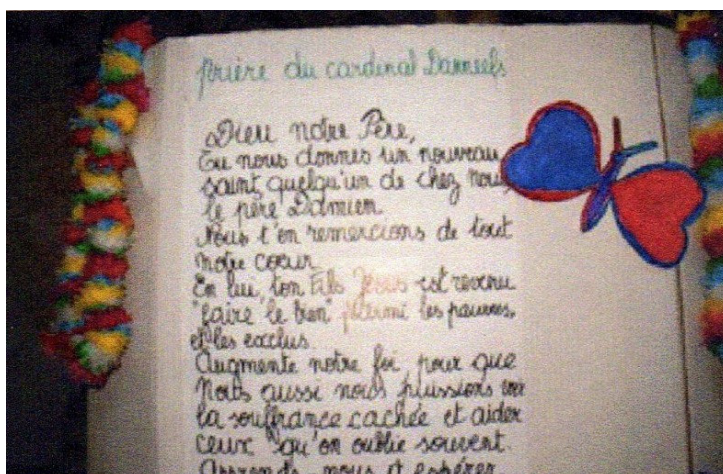 prière du cardinal Danneels
Dieu notre Père,
Tu nous donnes un nouveau
saint, quelqu'un de chez nous
le père Damien
Nous t'en remercions de tout
notre coeur
En lui, ton Fils Jésus est revenu
"faire le bien" parmi les pauvres,
et les exclus.
Augmente notre foi pour que
nous aussi nous puissions voir
la souffrance cachée et aider
ceux "qu'on oublie souvent.
Apprends-nous à espérer